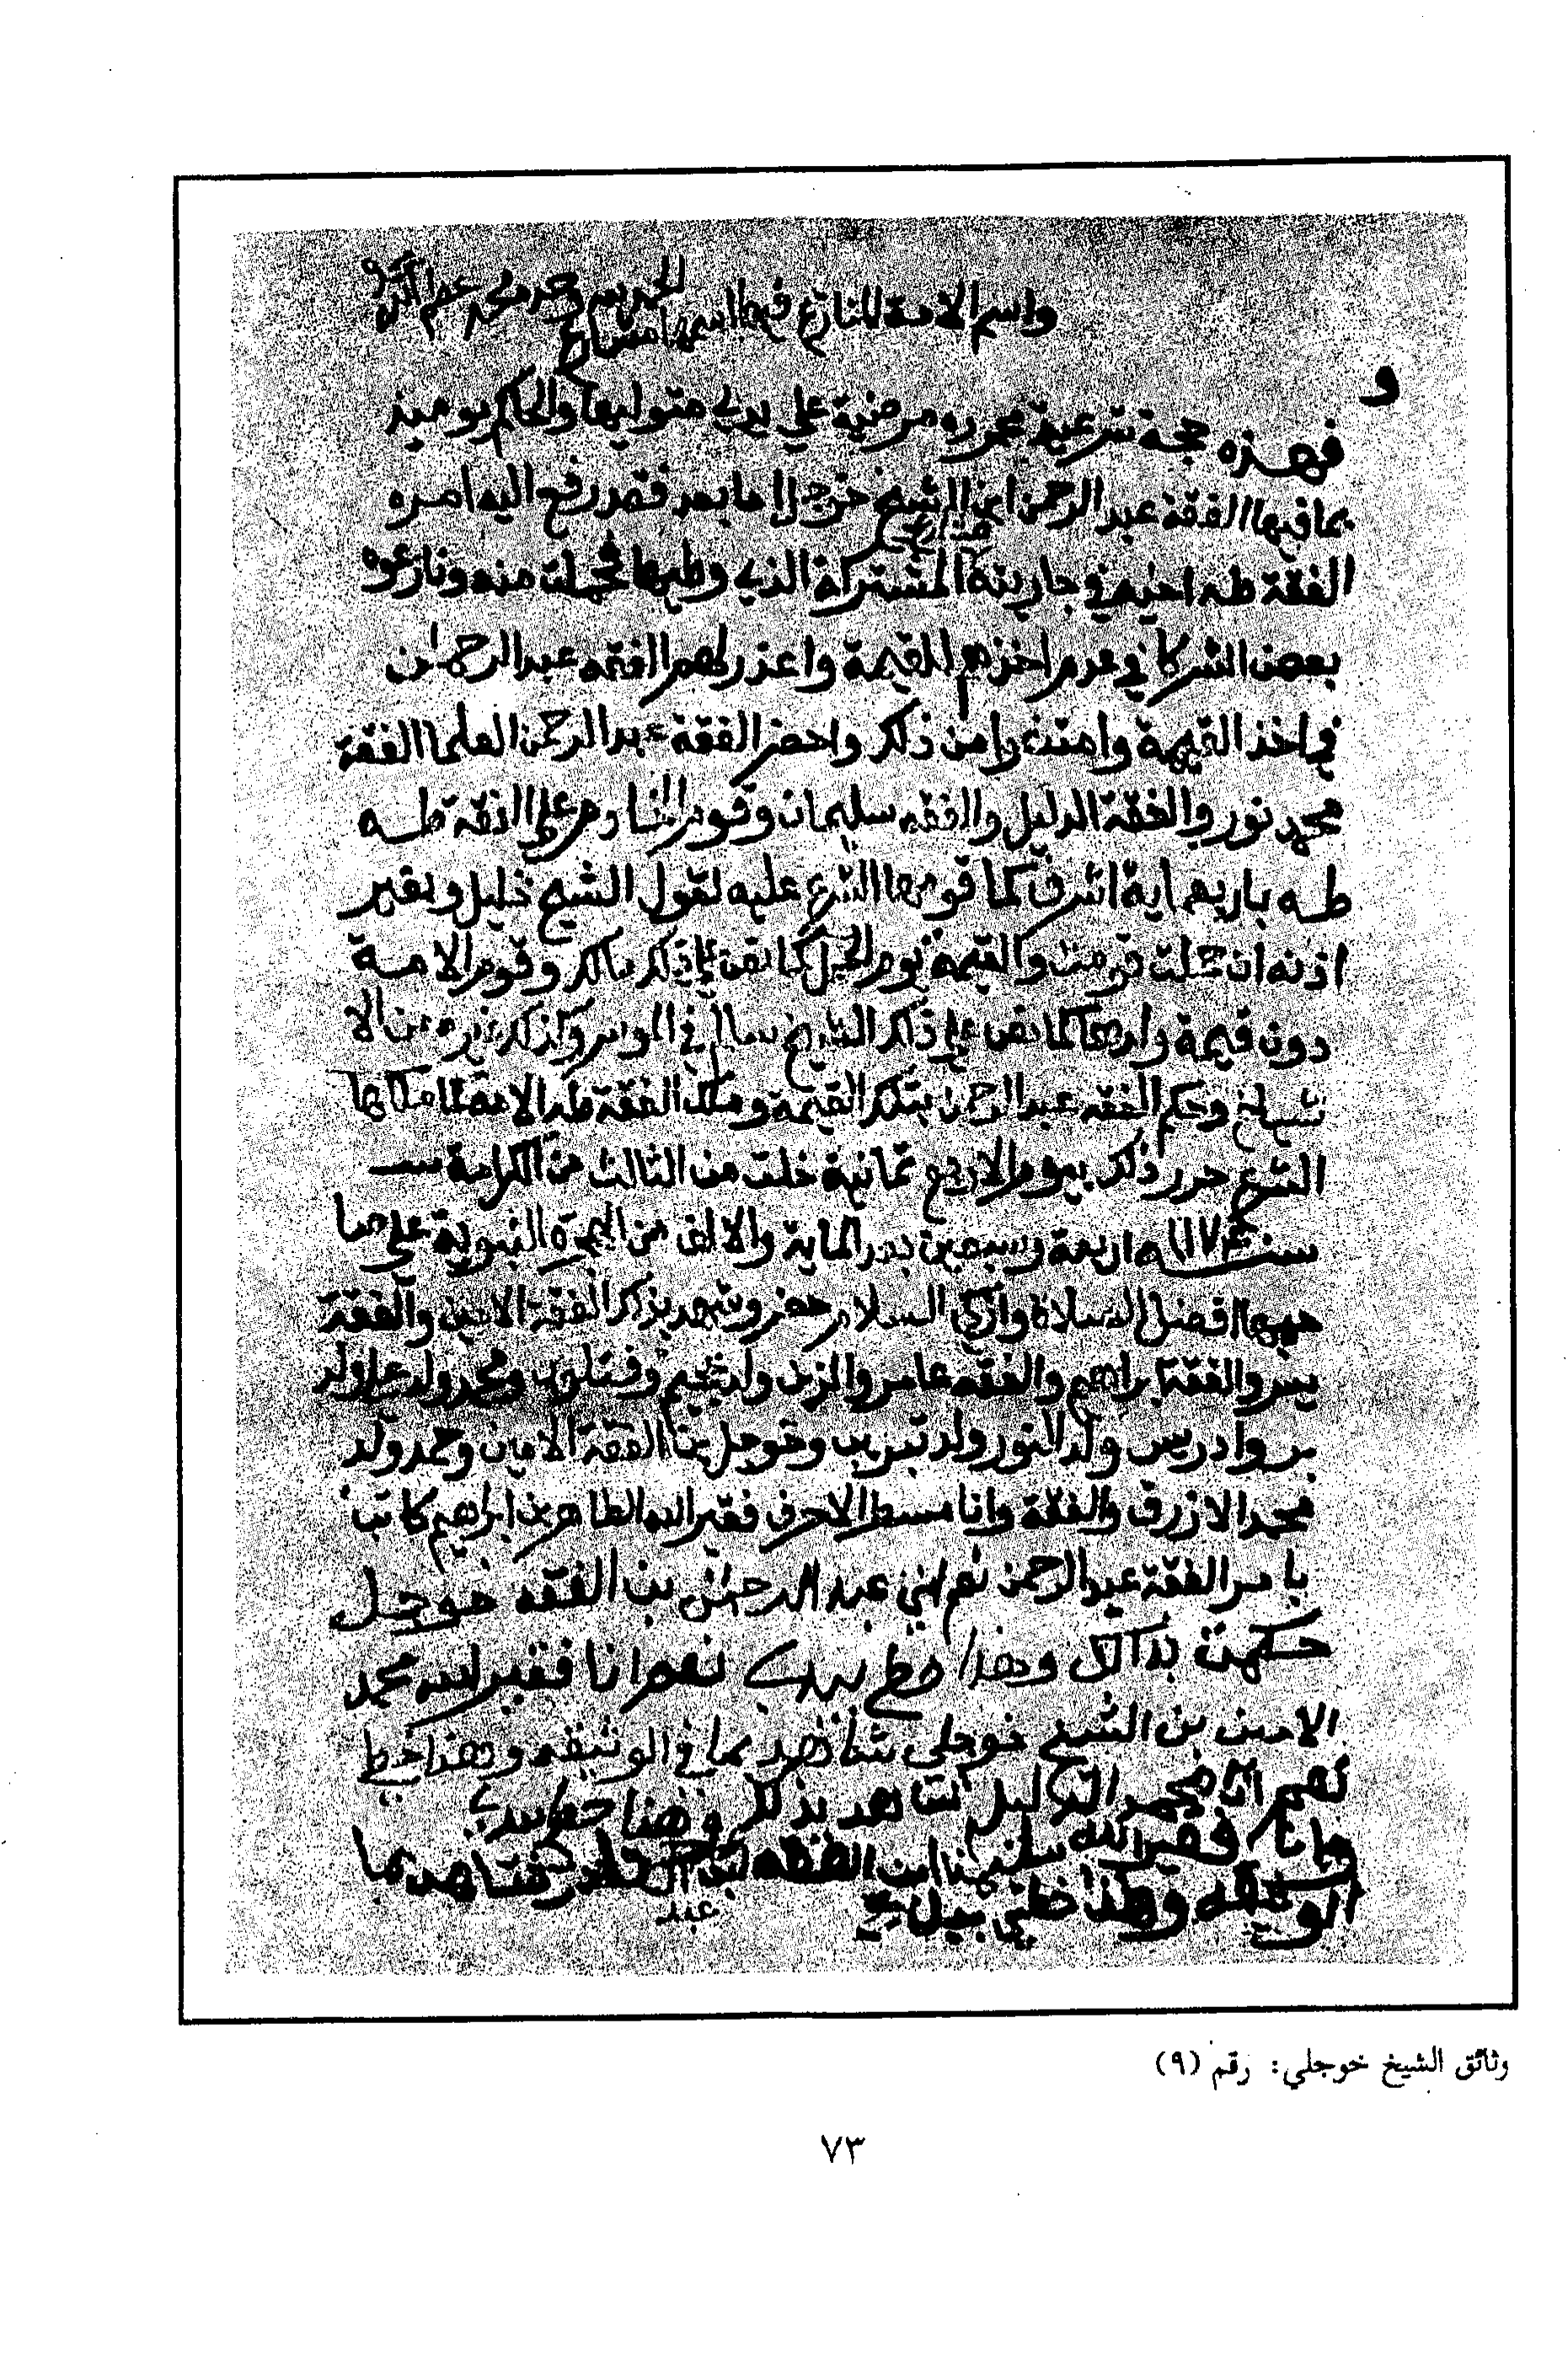 الحمد لله وحده
واسم الامة المنازع فيها اسمها
و
فهذه حجة شرعية محررة مرضية علي يدي متوليها والحاكم يوميذ
بما فيها الفقة عبد الرحمن ابن الشيخ خوجلي اما بعد فقد رفع اليه امره
الفقة طه اخيه في جاريته المشتركة الذي وطيها فحملت منه ونازعوه
بعض الشركا في عدم اخذهم للقيمة واعذر لهم الفقه عبد الرحمان
في اخذ القيمة وامتنعوا من ذلك واحضر الفقة عبد الرحمن العلما الفقة
محمد نور والفقة الدليل والفقه سليمان وقوم الخادم علي الفقة طه
طه باربعماية اشرف كما قومها الشرع عليه لقول الشيخ خليل وبغير
اذنه ان حملت قومت والقيمة يوم الحمل كما نص علي ذلك سالم وقوم الامة
دون قيمة ولدها كما نص علي ذلك الشيخ سالم في الموسر وكذلك غيره من الا
شياخ وحكم الفقه عبد الرحمن بتلك القيمة وملك الفقة طه الامة كما ملكها
الشرع حرر ذلك بيوم الاربع ثمانية خلت من الثالث من الكرامة
سنة ١١٧٤ اربعة وسبعين بعد الماية والالف من الهجرة النبوية علي صا
حبها افضل الصلاة وازكي السلام حضر وشهد بذلك الفقة الامين والفقة
يس والفقة ابراهيم والفقه عامر والزين ولد ومحمد ولد علي ولد
بر وادريس ولد النور ولد وخوجلي بن الفقة الامين وحمد ولد
محمد الازرق والفقة وانا مسطر الاحرف فقير الله الطاهر بن ابراهيم كاتب
بامر الفقة عبد الرحمن نعم انني عبد الرحمن بن الفقه خوجلي
حكمت بذالك وهذا خط يدي نعم انا فقير الله محمد
الامين بن الشيخ خوجلي شاهد بما في الوثيقه وهذا خط
نعم انا محمد الدليل شاهد بذلك وهذا خط يدي
وانا فقير الله سليمان ابن الفقه شاهد بما
الوثيقه وهذا خطي بيدي
عبد
وثائق الشيخ خوجلي: رقم (٩)
٧٣